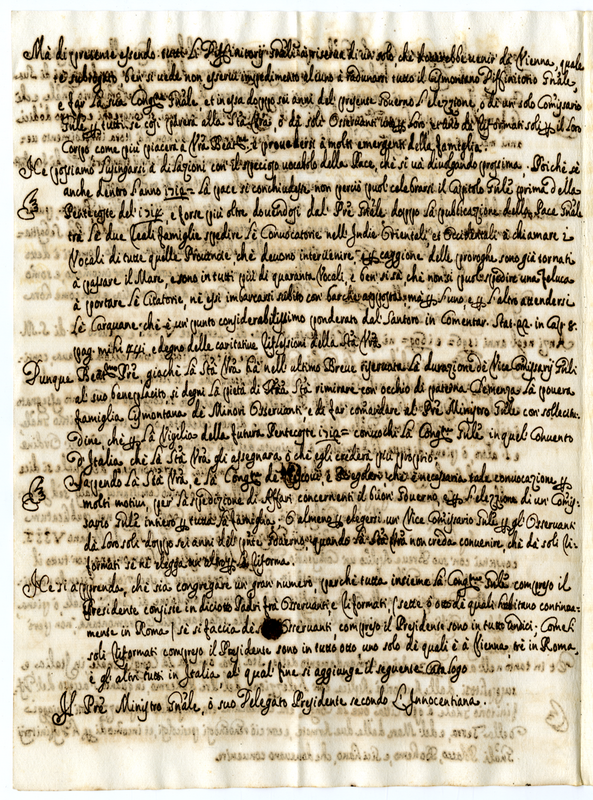 Mà di presente essendo tutti li Diffinitorij Gñali à riserva di un solo che dovrebbe venir da Vienna, quale
è subrogato ben si vede non esservi impedimento alcuno à radunarsi tutto il Cismontano Diffinitorio Gñale,
e far la sua Congne Gñale, et in essa doppo sei anni del presente Governo l'elezzione, ò di un solo Comissario
Gñle per tutti se così parerà alla Stà Vrã, ò da soli Osservanti per loro e uno da Riformati soli per il loro
Corpo come più piacerà à Vrã Beatne, e provedersi à molti emergenti della famiglia.
Ne possiamo lusingarsi di dilazioni con il specioso vocabolo della Pace, che si và divulgando prossima. Poiche se
anche dentro l'anno la pace si conchiudesse non perciò puol celebrarsi il Capitolo Gñle prima della
Pentecoste del e forse più oltre, dovendosi dal Prẽ Gñale doppo la publicazione della Pace Gñale
trà le due Reali famiglie spedire le Convocatorie nell'Indie Orientali et Occidentali à chiamare i
Vocali di tutte quelle Provincie che devono intervenire per caggione delle proroghe sono già tornati
à passare il Mare, e sono in tutti più di quaranta Vocali, e ben si sà che non si puol spedire una feluca
à portare le Citatorie, ne essi imbarcarsi subito con barche apposta, ma per l'uno e per l'altro attendersi
le Carquane che è un punto considerabilissimo ponderato dal Santoro in Comentar. Stat. in Cap. 8.
pag. mihi e degno delle caritative riflessioni della Stà Vrã.
Dunque Beatmo Prẽ, giache la Stà Vrã hà nell'ultimo Breve riservata la durazione de Vice Comissarij Gñli
al suo beneplacito, si degni la pietà di Vrã Stà rimirare con occhio di paterna Clemenza la povera
famiglia Cismontana de Minori Osservanti e di far comandare al Prẽ Ministro Gñle con sollecitu-
dine, che per la Vigilia della futura Pentecoste convochi la Congne Gñle in quel Convento
d'Italia che la Stà Vrã gli assegnarà ò che egli crederà più proprio.
Sapendo la Stà Vrã, e la Congne de Vescovi e Regolari che è necessaria tale convocazione per
molti motivi, per la spedizione di affari concernenti il buon Governo, e per l'elezzione di un Comis-
sario Gñle intiero per tutta la famiglia. O almeno per elegersi un Vice Comissario Gñle per gl'Osservanti
da loro soli doppo sei anni dell' Governo, quando la Stà Vrã non creda convenire, che da soli Ri-
formati se ne elegga un altro per la Riforma.
Ne si apprenda, che sia congregare un gran numero, perche tutta insieme la Congne Gñle compreso il
Presidente consiste in diciotto Padri frà Osservanti e Riformati, (sette ò otto di quali habitano continua-
mente in Roma) se si faccia de Osservanti, compreso il Presidente sono in tutto undici. Come li
soli Riformati compreso il Presidente sono in tutto otto, uno solo di quali è à Vienna, trè in Roma,
e gli altri tutti in Italia, al qual fine si aggiunge il seguente Catalogo.
Il Prẽ Ministro Gñale, ò suo Delegato Presidente secondo l'Innocentiana.